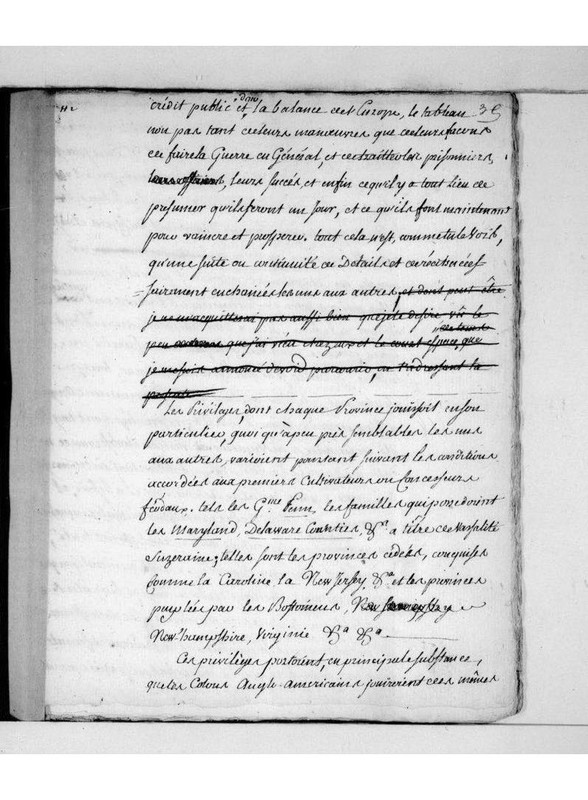 crédit public et dans la balance de l'Europe, le tableau 35
non pas tant de leurs manœuvres que de leurs facons
de faire la Guerre en Général, et de traitter les prisonniers,
leurs succés, et enfin ce qu'il y a tout lieu de
presumer qu'ils feront un jour, et ce qu'ils font maintenant
pour vaincre et prosperer. tout cela n'est, comme tu le vois,
qu'une suite ou continuité de Details et de récits
surement enchainés les uns aux autres, et dont peut être
je ne m'acquitterai pas aussi bien que je le desire vû le
peu que j'ai vécu chez eux et le court espace, que
en t'adressant la
presente
Les Privileges, dont chaque Province jouissoit en son
particulier, quoi qu'à peu près semblables les uns
aux autres, varioient pourtant suivant les conditions
accordées aux premiers Cultivateurs ou Concesseurs
féodaux. tels les G.me Penn, les familles qui possedoient
les Maryland, Delaware Counties, &.a à titre de Vassalité
Suzeraine; telles sont les provinces cédées, conquises
comme la Caroline la New Jersey &.a et les provinces
peuplées par les Bostoniens, New
New-hampshire, Virginie &.a &.a
Ces privilèges portoient, en principale substance,
que les Colons Anglo-américains jouiroient des mêmes